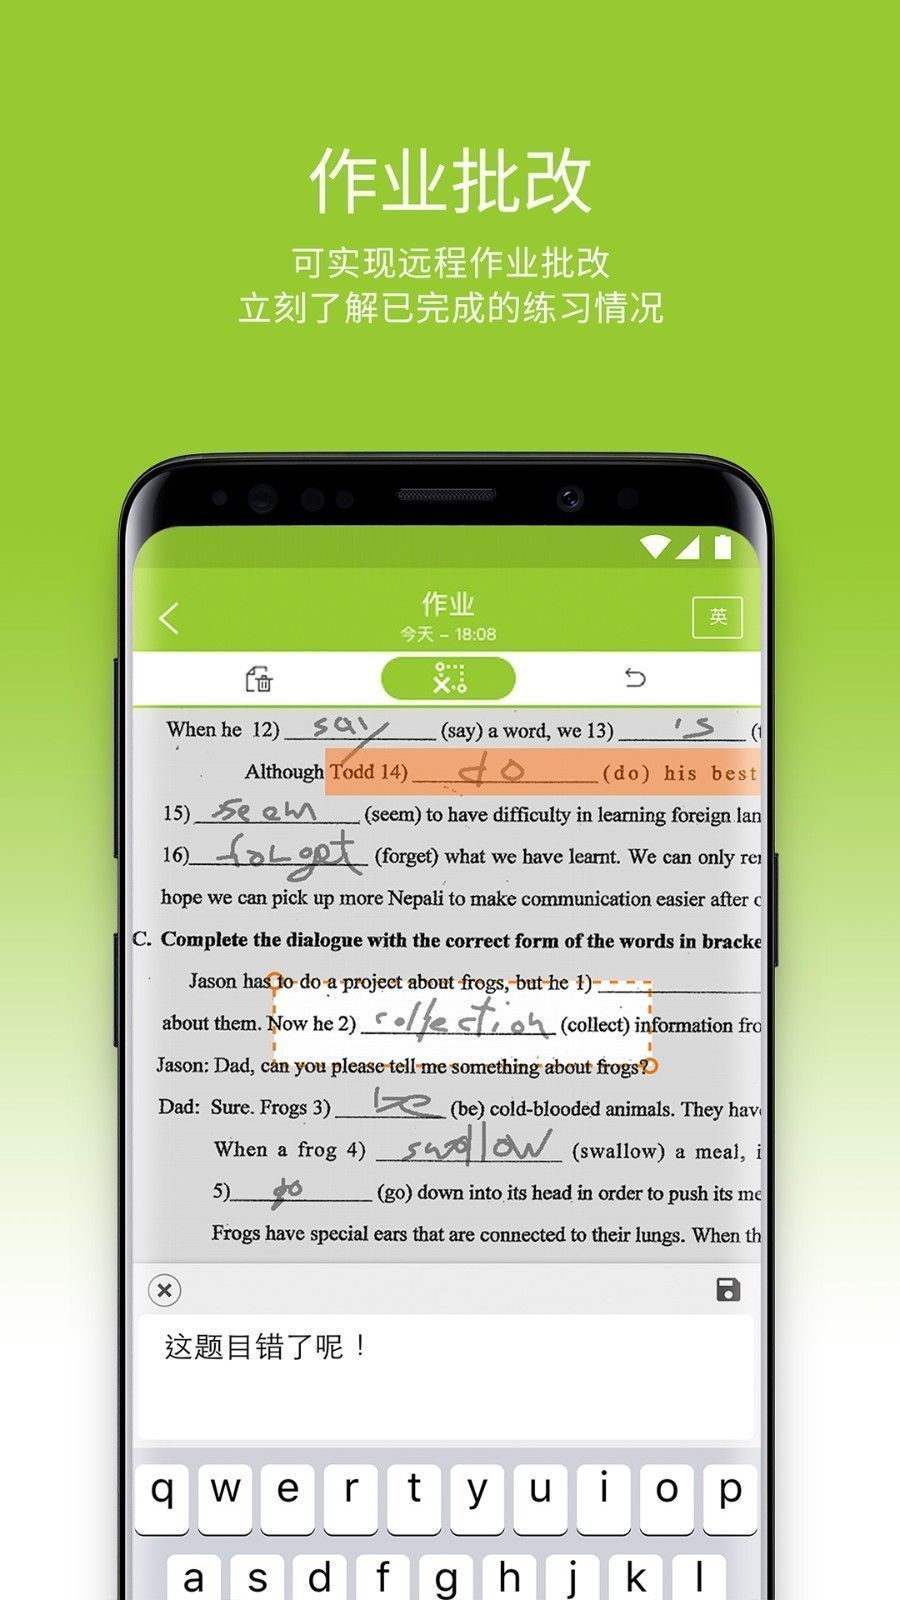 作业批改
可实现远程作业批改
立刻了解已完成的练习情况
作业
今天 – 18:08
英
When he 12) say (say) a word, we 13) 's (t
Although Todd 14) do (do) his best
15) seem (seem) to have difficulty in learning foreign lan
16) forget (forget) what we have learnt. We can only rer
hope we can pick up more Nepali to make communication easier after c
C. Complete the dialogue with the correct form of the words in bracke
Jason has to do a project about frogs, but he 1)
about them. Now he 2) collection (collect) information fro
Jason: Dad, can you please tell me something about frogs?
Dad: Sure. Frogs 3) be (be) cold-blooded animals. They hav
When a frog 4) swallow (swallow) a meal, i
5) go (go) down into its head in order to push its me
Frogs have special ears that are connected to their lungs. When th
这题目错了呢！
q w e r t y u i o p
a s d f g h j k l